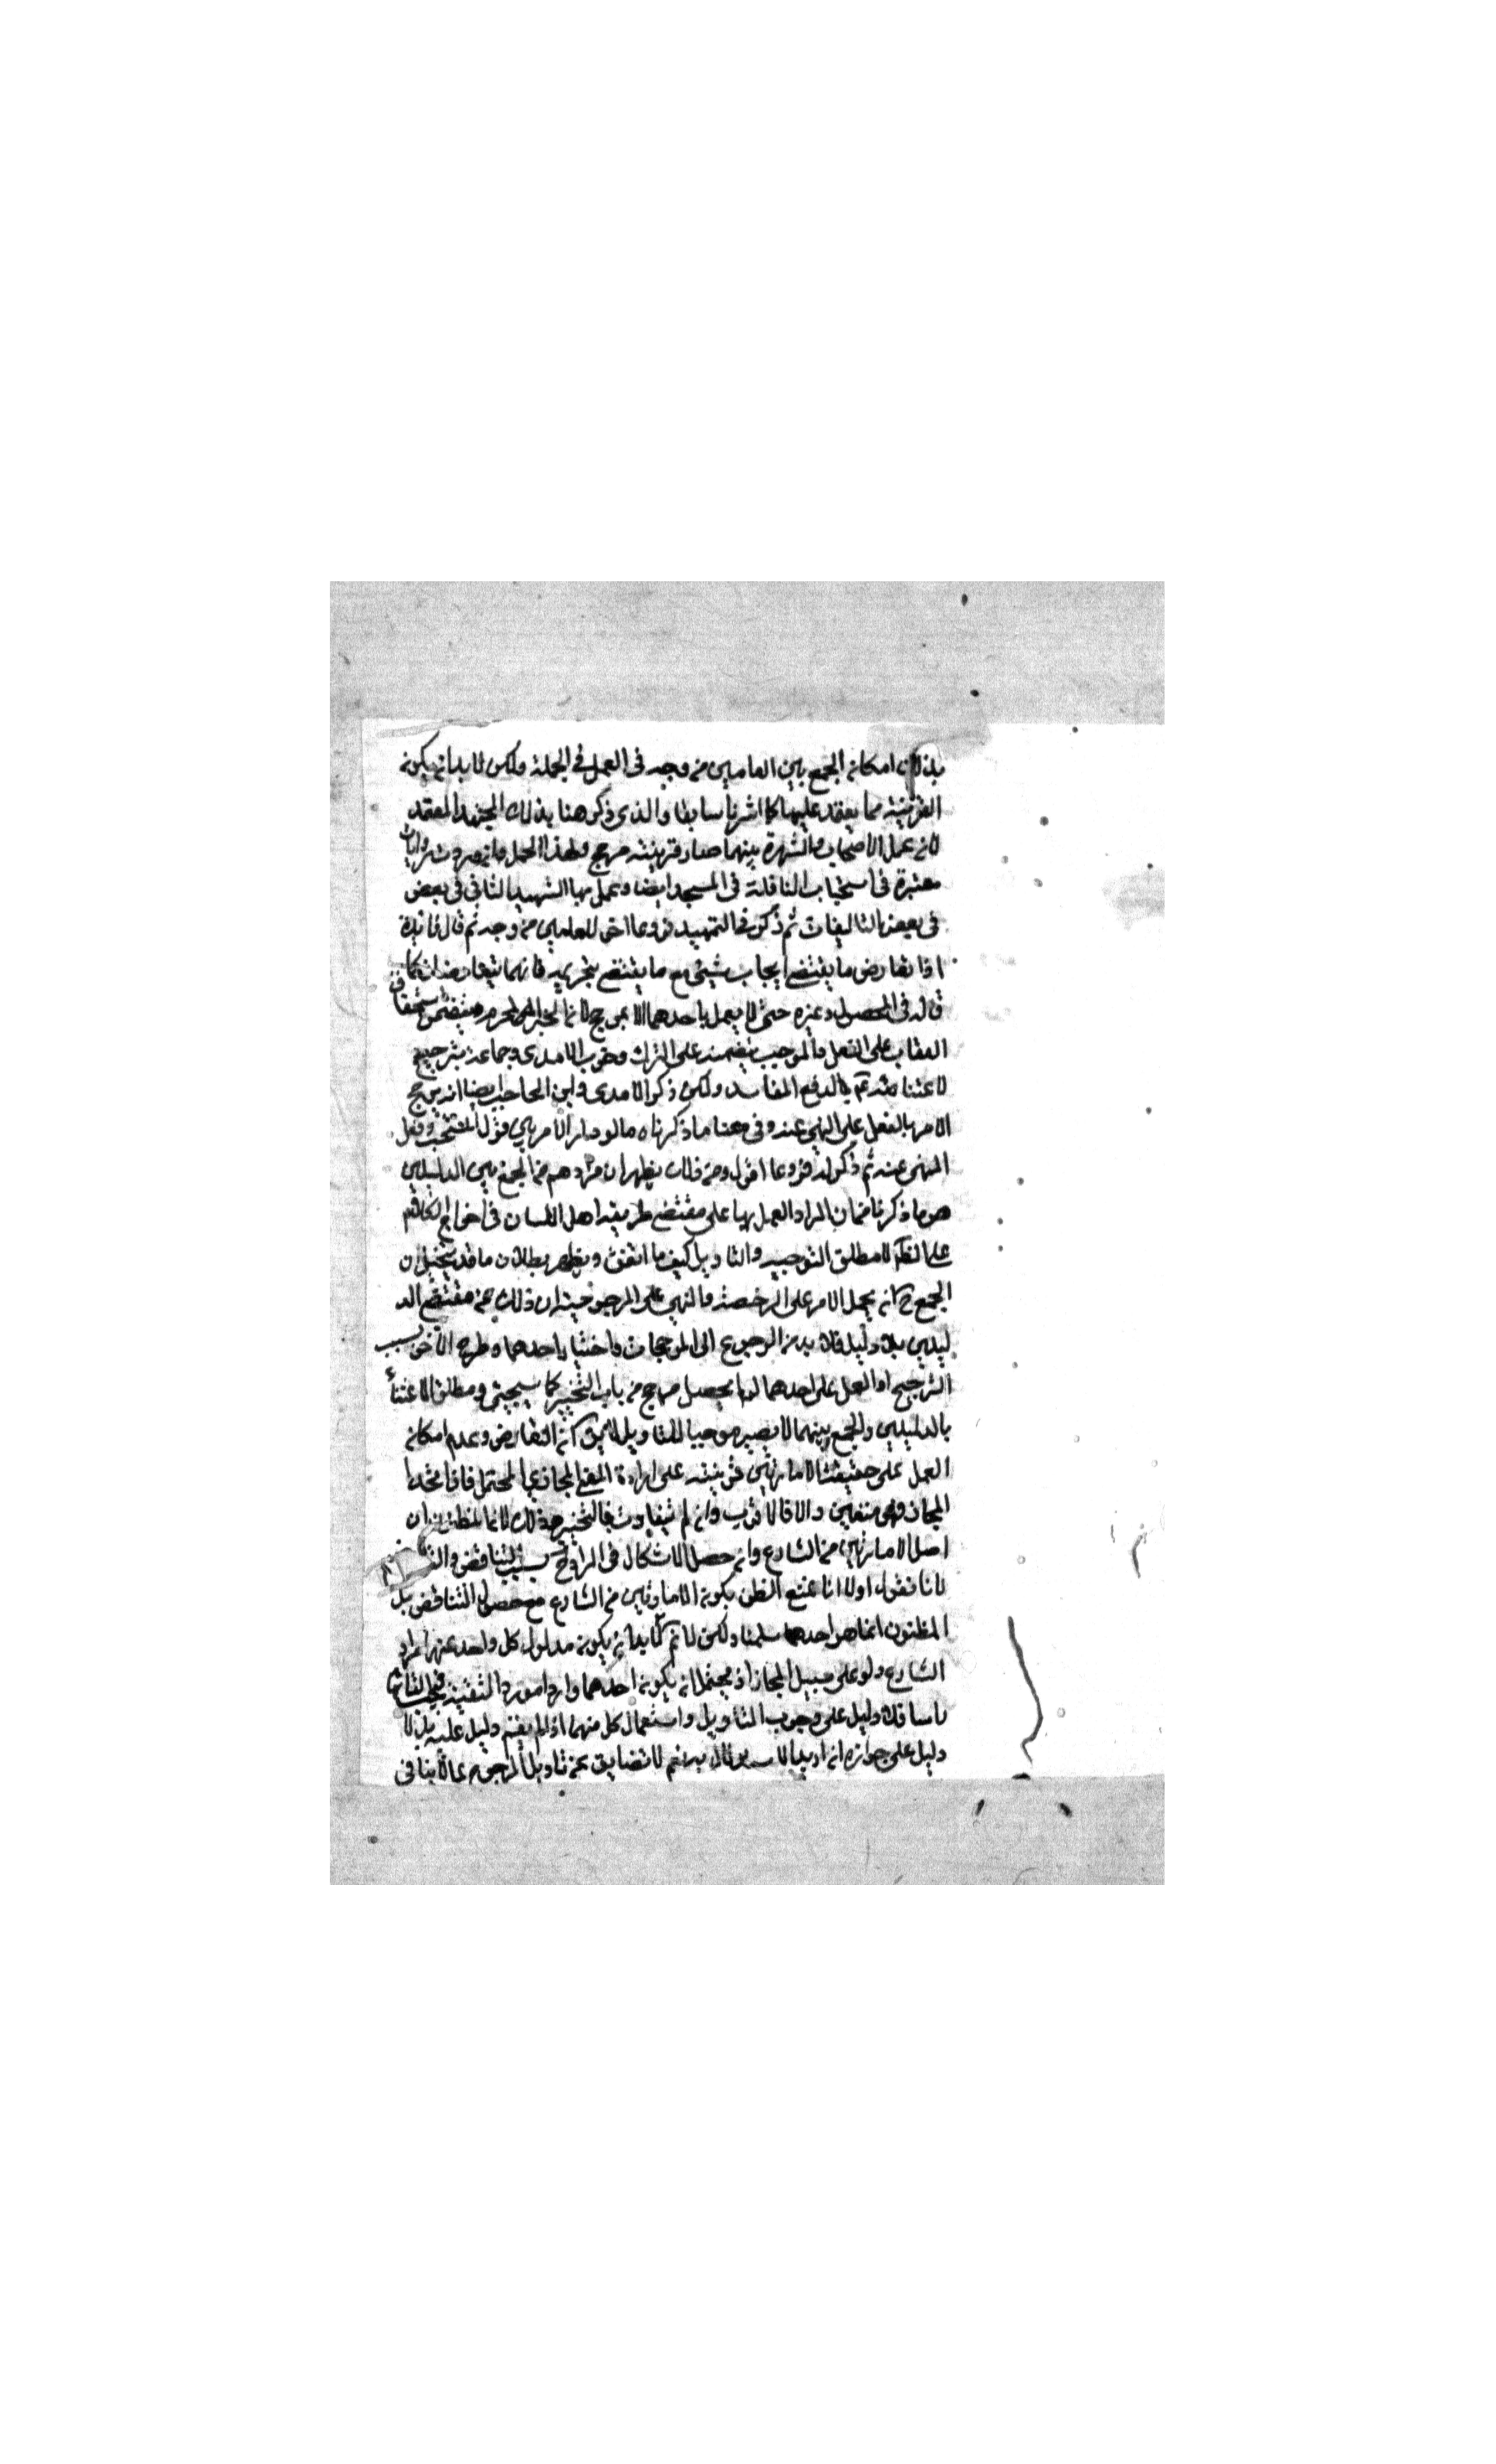 بذلك امكان الجمع بين العامين من وجه فى العمل فى الجملة ولكن لا بد ان يكون
القرينة مما يعتمد عليها كما اشرنا سابقا والذى ذكر هنا بذلك المجتهد المعتمد
لان عمل الاصحاب والشهرة بينهما صار قرينته مرجح لهذا الحمل وانه ورد روايات
معتبرة فى استحباب النافلة فى المسجد ايضا وعمل بها الشهيد الثانى فى بعض
فى بعض التاليفات ثم ذكر فى التمهيد فروعا اخر للعامين من وجه ثم قال فائدة
اذا تعارض ما يقتضى ايجاب شيئ مع ما يقتضى تحريمه فانهما يتعارضان كما
قاله فى المحصول وغيره حتى لا يعمل باحدهما الا بمرجح لان الخبر المحرم يتضمن استحقاق
العقاب على الفعل والموجب يتضمنه على الترك وجوب الامدى وجماعة بترجيح
لاعتنائهم بالدفع المفاسد ولكن ذكر الامدى وابن الحاجب ايضا انه يرجح
الامر بالفعل على النهى عنه وفى معنا ما ذكرناه ما لو دار الامر بين فعل المستحب وفعل
المنهى عنه ثم ذكر له فروعا اقول ومن ذلك يظهر ان مرادهم من الجمع بين الدليلين
هو ما ذكرنا من ان المراد العمل بها على مقتضى طريقة اهل اللسان فى اخراج الكلام
على الظاهر لا مطلق التوجيه والتاويل كيف ما اتفق ويظهر بطلان ما قد يتخيل ان
الجمع ح انه يحمل الامر على الرخصة والنهى على المرجوحية ان ذلك عن مقتضى الد
ليلين بلا دليل فلا بد من الرجوع الى المرجحات واختيار احدهما وطرح الآخر بسبب
الترجيح او العمل على احدهما لو لم يحصل مرجح من باب التخيير كما سيجيئ ومطلق الاعتناء
بالدليلين والجمع بينهما لا يصير موجبا للتاويل لا يق ان التعارض وعدم امكان
العمل على حقيقة الامارتين قرينة على ارادة المعنى المجازى المحتمل فاذا اتحد
المجاز فهو متعين والا فالاقرب وان لم يتفاوت فالتخيير وذلك لانا نظن ان
اصل الامارتين من الشارع وان حصل الاشكال فى المراد بسبب التناقض
لانا نقول اولا انا نمنع الظن بكون الامارتين من الشارع مع حصول التناقض بل
المظنون انما هو احدهما سلمنا ولكن لا نم لا بد ان يكون مدلول كل واحد عنها مراد
الشارع ولو على سبيل المجاز اذ يحتمل ان يكون احدهما واردا مورد التقية
باسا فلا دليل على وجوب التاويل واستعمال كل منهما اذا لم يقم دليل عليه بل لا
دليل على جوازه ان اريد الاستدلال به نعم لا نضايق عن تاويل المرجوح بما لا ينافى